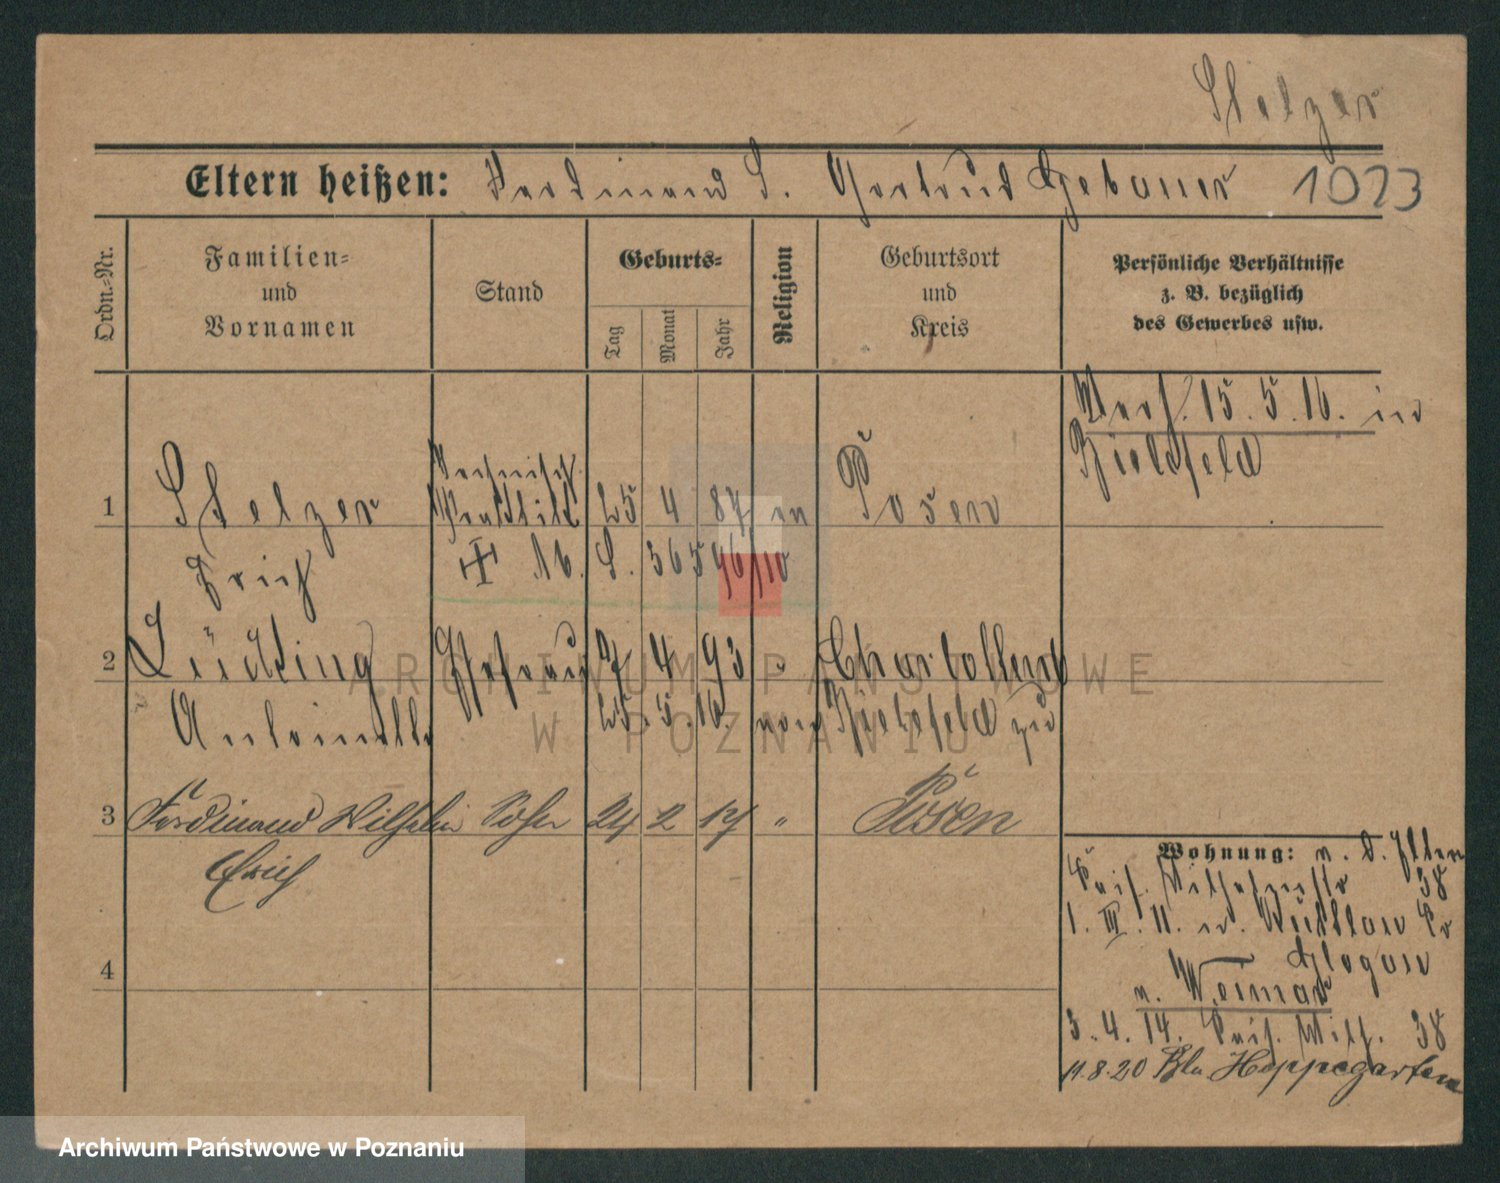 Stelzer
Eltern heißen: Ferdinand S. Gertrud Gebauer 1023
Ordn.-Nr.
Familien-
und
Vornamen
Stand
Geburts-
Tag
Monat
Jahr
Religion
Geburtsort
und
Kreis
Persönliche Verhältnisse
z. B. bezüglich
des Gewerbes usw.
Verh. 15. 5. 16. in
Bielefeld
1 Stelzer 25 4 87 Posen
Erich 16. S. 365
2 Lücking Ehefrau 7 4 93 "
Antoinette 25. 5. 16. von Bielefeld
3 Ferdinand Wilhelm Sohn 24 2 17 " Posen
Erich
Wohnung: v. d. Eltern
38
1. III. 11. Glogau
v. Weimar
3. 4. 14. 38
4
11.8.20 Bln Hoppegarten
ARCHIWUM PAŃSTWOWE
W POZNANIU
Archiwum Państwowe w Poznaniu